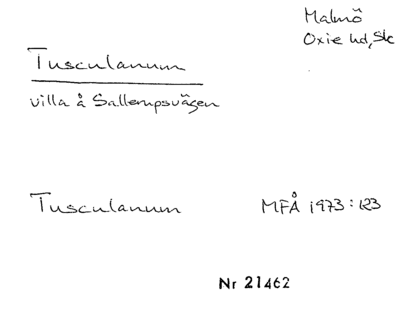 Malmö
Oxie hd, Sk
Tusculanum
villa å Sallerupsvägen
Tusculanum MFÅ 1973:123
Nr 21462